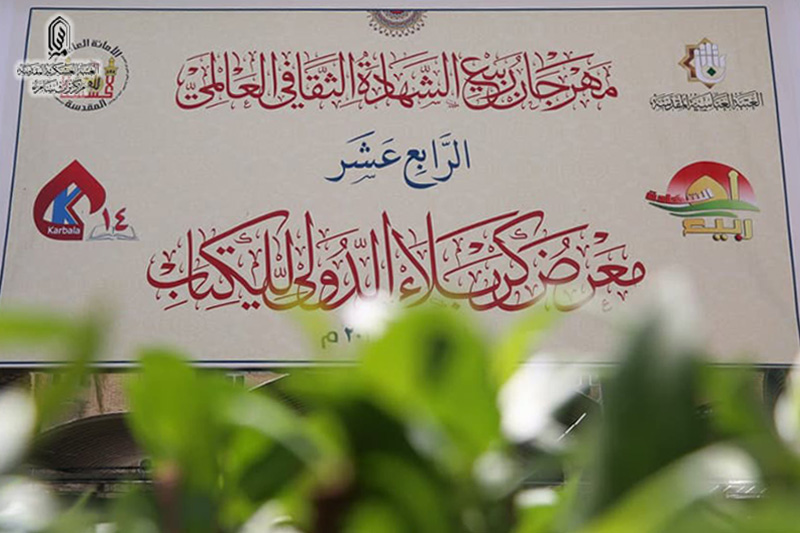 مهرجان ربيع الشهادة الثقافي العالمي
الرابع عشر
معرض كربلاء الدولي للكتاب
العتبة العباسية المقدسة
العتبة العسكرية المقدسة
الأمانة العامة
المقدسة
ربيع
الشهادة
K
Karbala
١٤
م